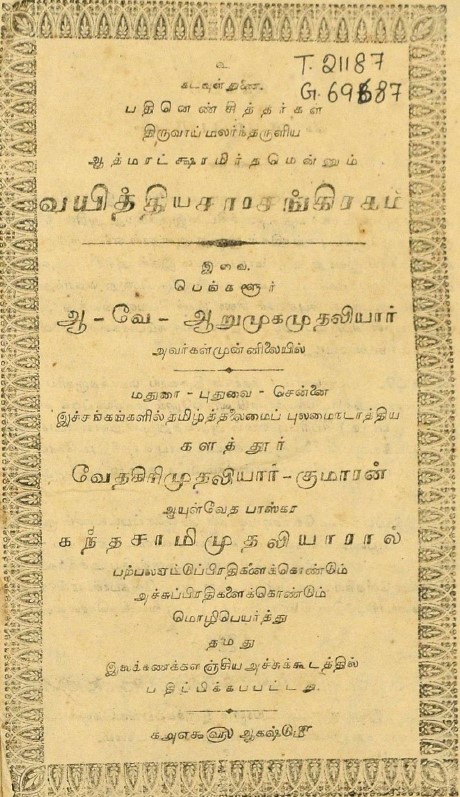 உ
T. 21187
கடவுள் துணை.
G. 69687
பதினெண்சித்தர்கள்
திருவாய்மலர்ந்தருளிய
ஆத்மரட்க்ஷாமிர்தமென்னும்
வயித்தியசாரசங்கிரகம்
இவை.
பெங்களூர்
ஆ - வே - ஆறுமுகமுதலியார்
அவர்கள்முன்னிலையில்
மதுரை - புதுவை - சென்னை
இச்சங்கங்களில் தமிழ்த்தலைமைப் புலமைநடாத்திய
களத்தூர்
வேதகிரிமுதலியார் - குமாரன்
ஆயுள்வேத பாஸ்கர
கந்தசாமிமுதலியாரால்
பற்பலஏட்டுப்பிரதிகளைக்கொண்டும்
அச்சுப்பிரதிகளைக்கொண்டும்
மொழிபெயர்த்து
தமது
இலக்கணக்களஞ்சிய அச்சுக்கூடத்தில்
பதிப்பிக்கப்பட்டது.
௧௮௭௯௵ ஆகஷ்டு௴